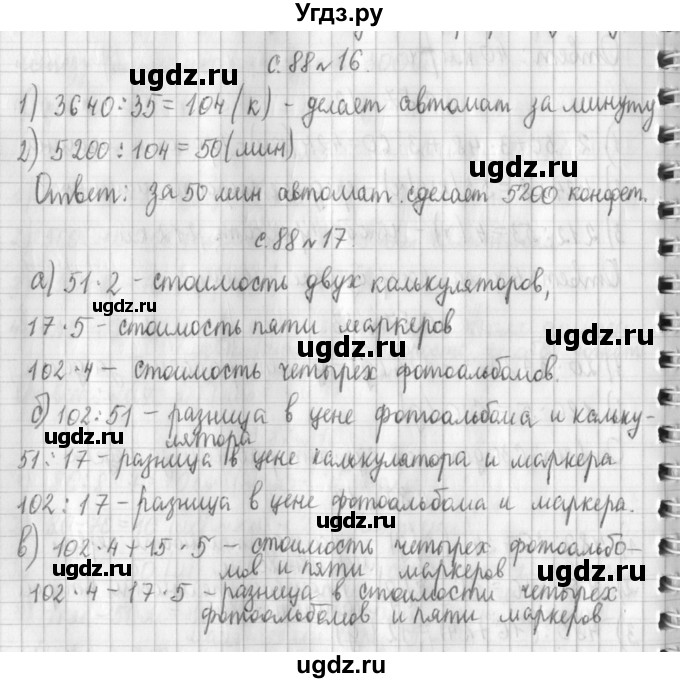 Угдз.ру
с. 88 № 16.
1) 3640 : 35 = 104 (к) - делает автомат за минуту
2) 5200 : 104 = 50 (мин)
Ответ: за 50 мин автомат сделает 5200 конфет.
с. 88 № 17.
а) 51 · 2 - стоимость двух калькуляторов,
17 · 5 - стоимость пяти маркеров
102 · 4 - стоимость четырех фотоальбомов.
б) 102 : 51 - разница в цене фотоальбома и кальку-
лятора
51 : 17 - разница в цене калькулятора и маркера
102 : 17 - разница в цене фотоальбома и маркера.
в) 102 · 4 + 15 · 5 - стоимость четырех фотоальбо-
мов и пяти маркеров
102 · 4 - 17 · 5 - разница в стоимости четырех
фотоальбомов и пяти маркеров
ugdz.ru